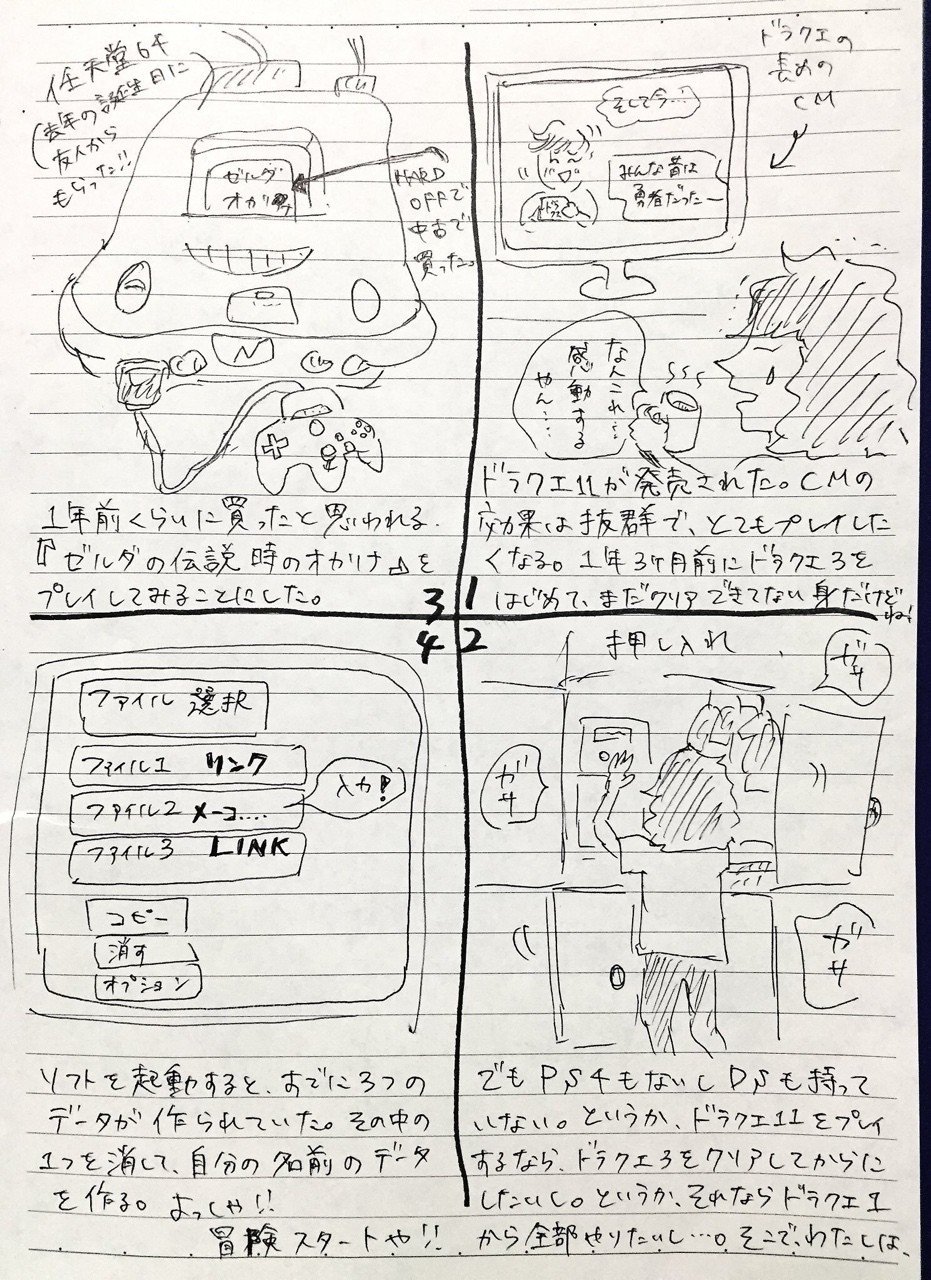 ドラクエの
長めの
CM
そして今…
みんな昔は
勇者だったー
なんこれ…
感動する
やん…
ドラクエ11が発売された。CMの
効果は抜群で、とてもプレイした
くなる。1年3ヶ月前にドラクエ3を
はじめて、まだクリアできてない身だけどね!
1
2
押し入れ
ガサ
ガサ
ガサ
でもPS4もないしDSも持って
いない。というか、ドラクエ11をプレイ
するなら、ドラクエ3をクリアしてからに
したいし。というか、それならドラクエ1
から全部やりたいし…。そこで、わたしは、
任天堂64
(去年の誕生日に
友人から
もらった!!
ゼルダ
オカリナ
HARD
OFFで
中古で
買った。
N
1年前くらいに買ったと思われる、
『ゼルダの伝説 時のオカリナ』を
プレイしてみることにした。
3
4
ファイル 選択
ファイル1 リンク
ファイル2 メーコ....
入力!
ファイル3 LINK
コピー
消す
オプション
ソフトを起動すると、すでに3つの
データが作られていた。その中の
1つを消して、自分の名前のデータ
を作る。よっしゃ!!
冒険スタートや!!